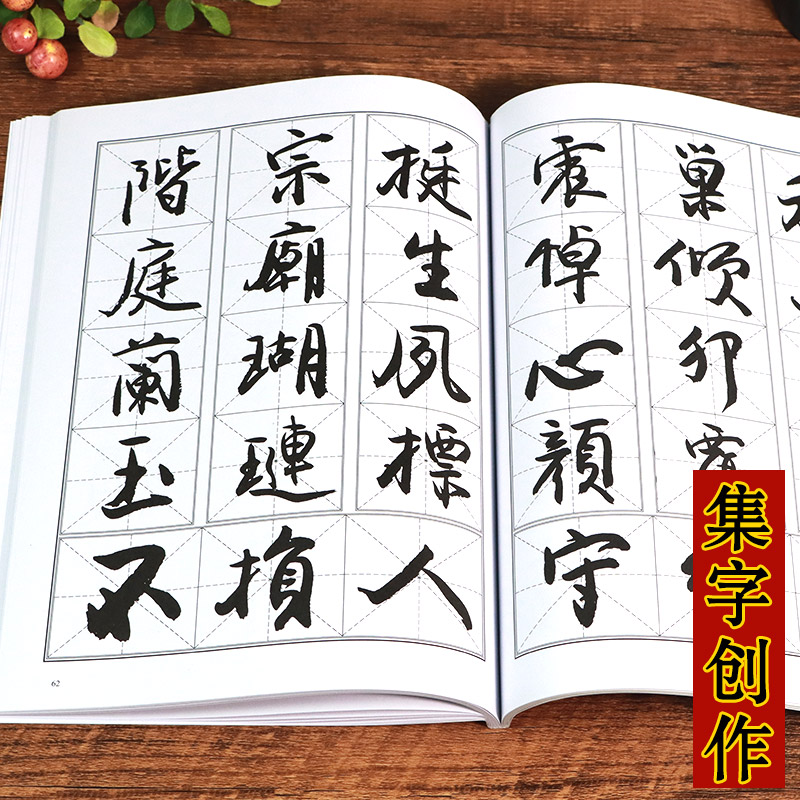 巢傾卵
震悼心顏
守
挺生夙標
宗廟瑚璉
階庭蘭玉
不損人
62
集字创作